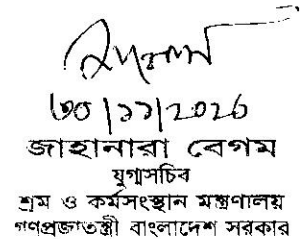 ৩০|১১|২০১৬
জাহানারা বেগম
যুগ্মসচিব
শ্রম ও কর্মসংস্থান মন্ত্রণালয়
গণপ্রজাতন্ত্রী বাংলাদেশ সরকার